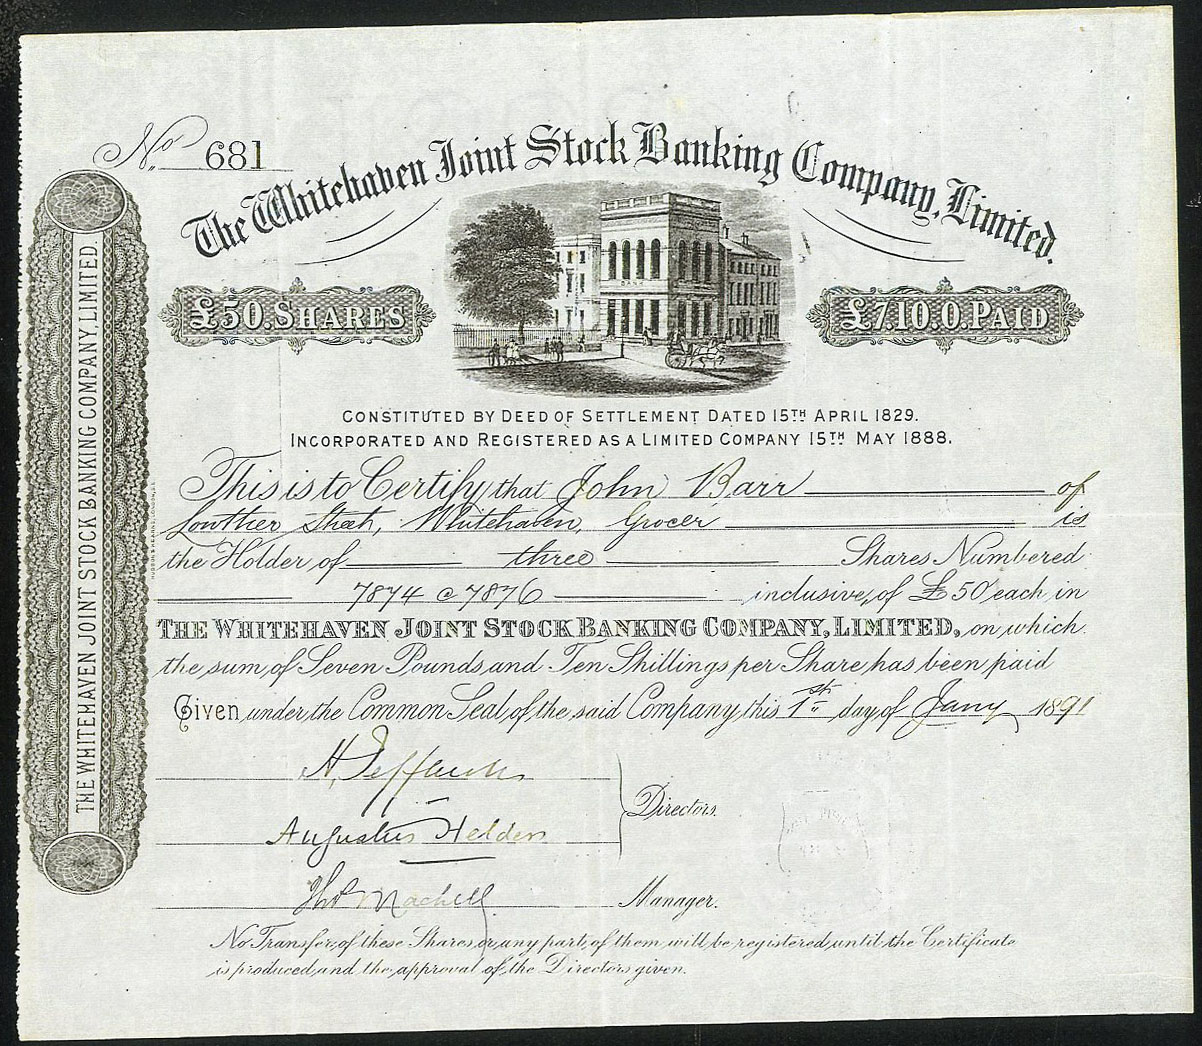 No 681
The Whitehaven Joint Stock Banking Company, Limited.
£50. SHARES
£7.10.0. PAID
CONSTITUTED BY DEED OF SETTLEMENT DATED 15TH APRIL 1829.
INCORPORATED AND REGISTERED AS A LIMITED COMPANY 15TH MAY 1888.
This is to Certify that John Barr of
Lowther Street, Whitehaven, Grocer is
the Holder of three Shares Numbered
7874 @ 7876 inclusive, of £50 each in
THE WHITEHAVEN JOINT STOCK BANKING COMPANY, LIMITED, on which
the sum of Seven Pounds and Ten Shillings per Share has been paid
Given under the Common Seal of the said Company this 1st day of Jany 1891
Augustus Helder
Directors.
Thos Machell
Manager.
No Transfer of these Shares, or any part of them will be registered until the Certificate
is produced and the approval of the Directors given.
THE WHITEHAVEN JOINT STOCK BANKING COMPANY, LIMITED